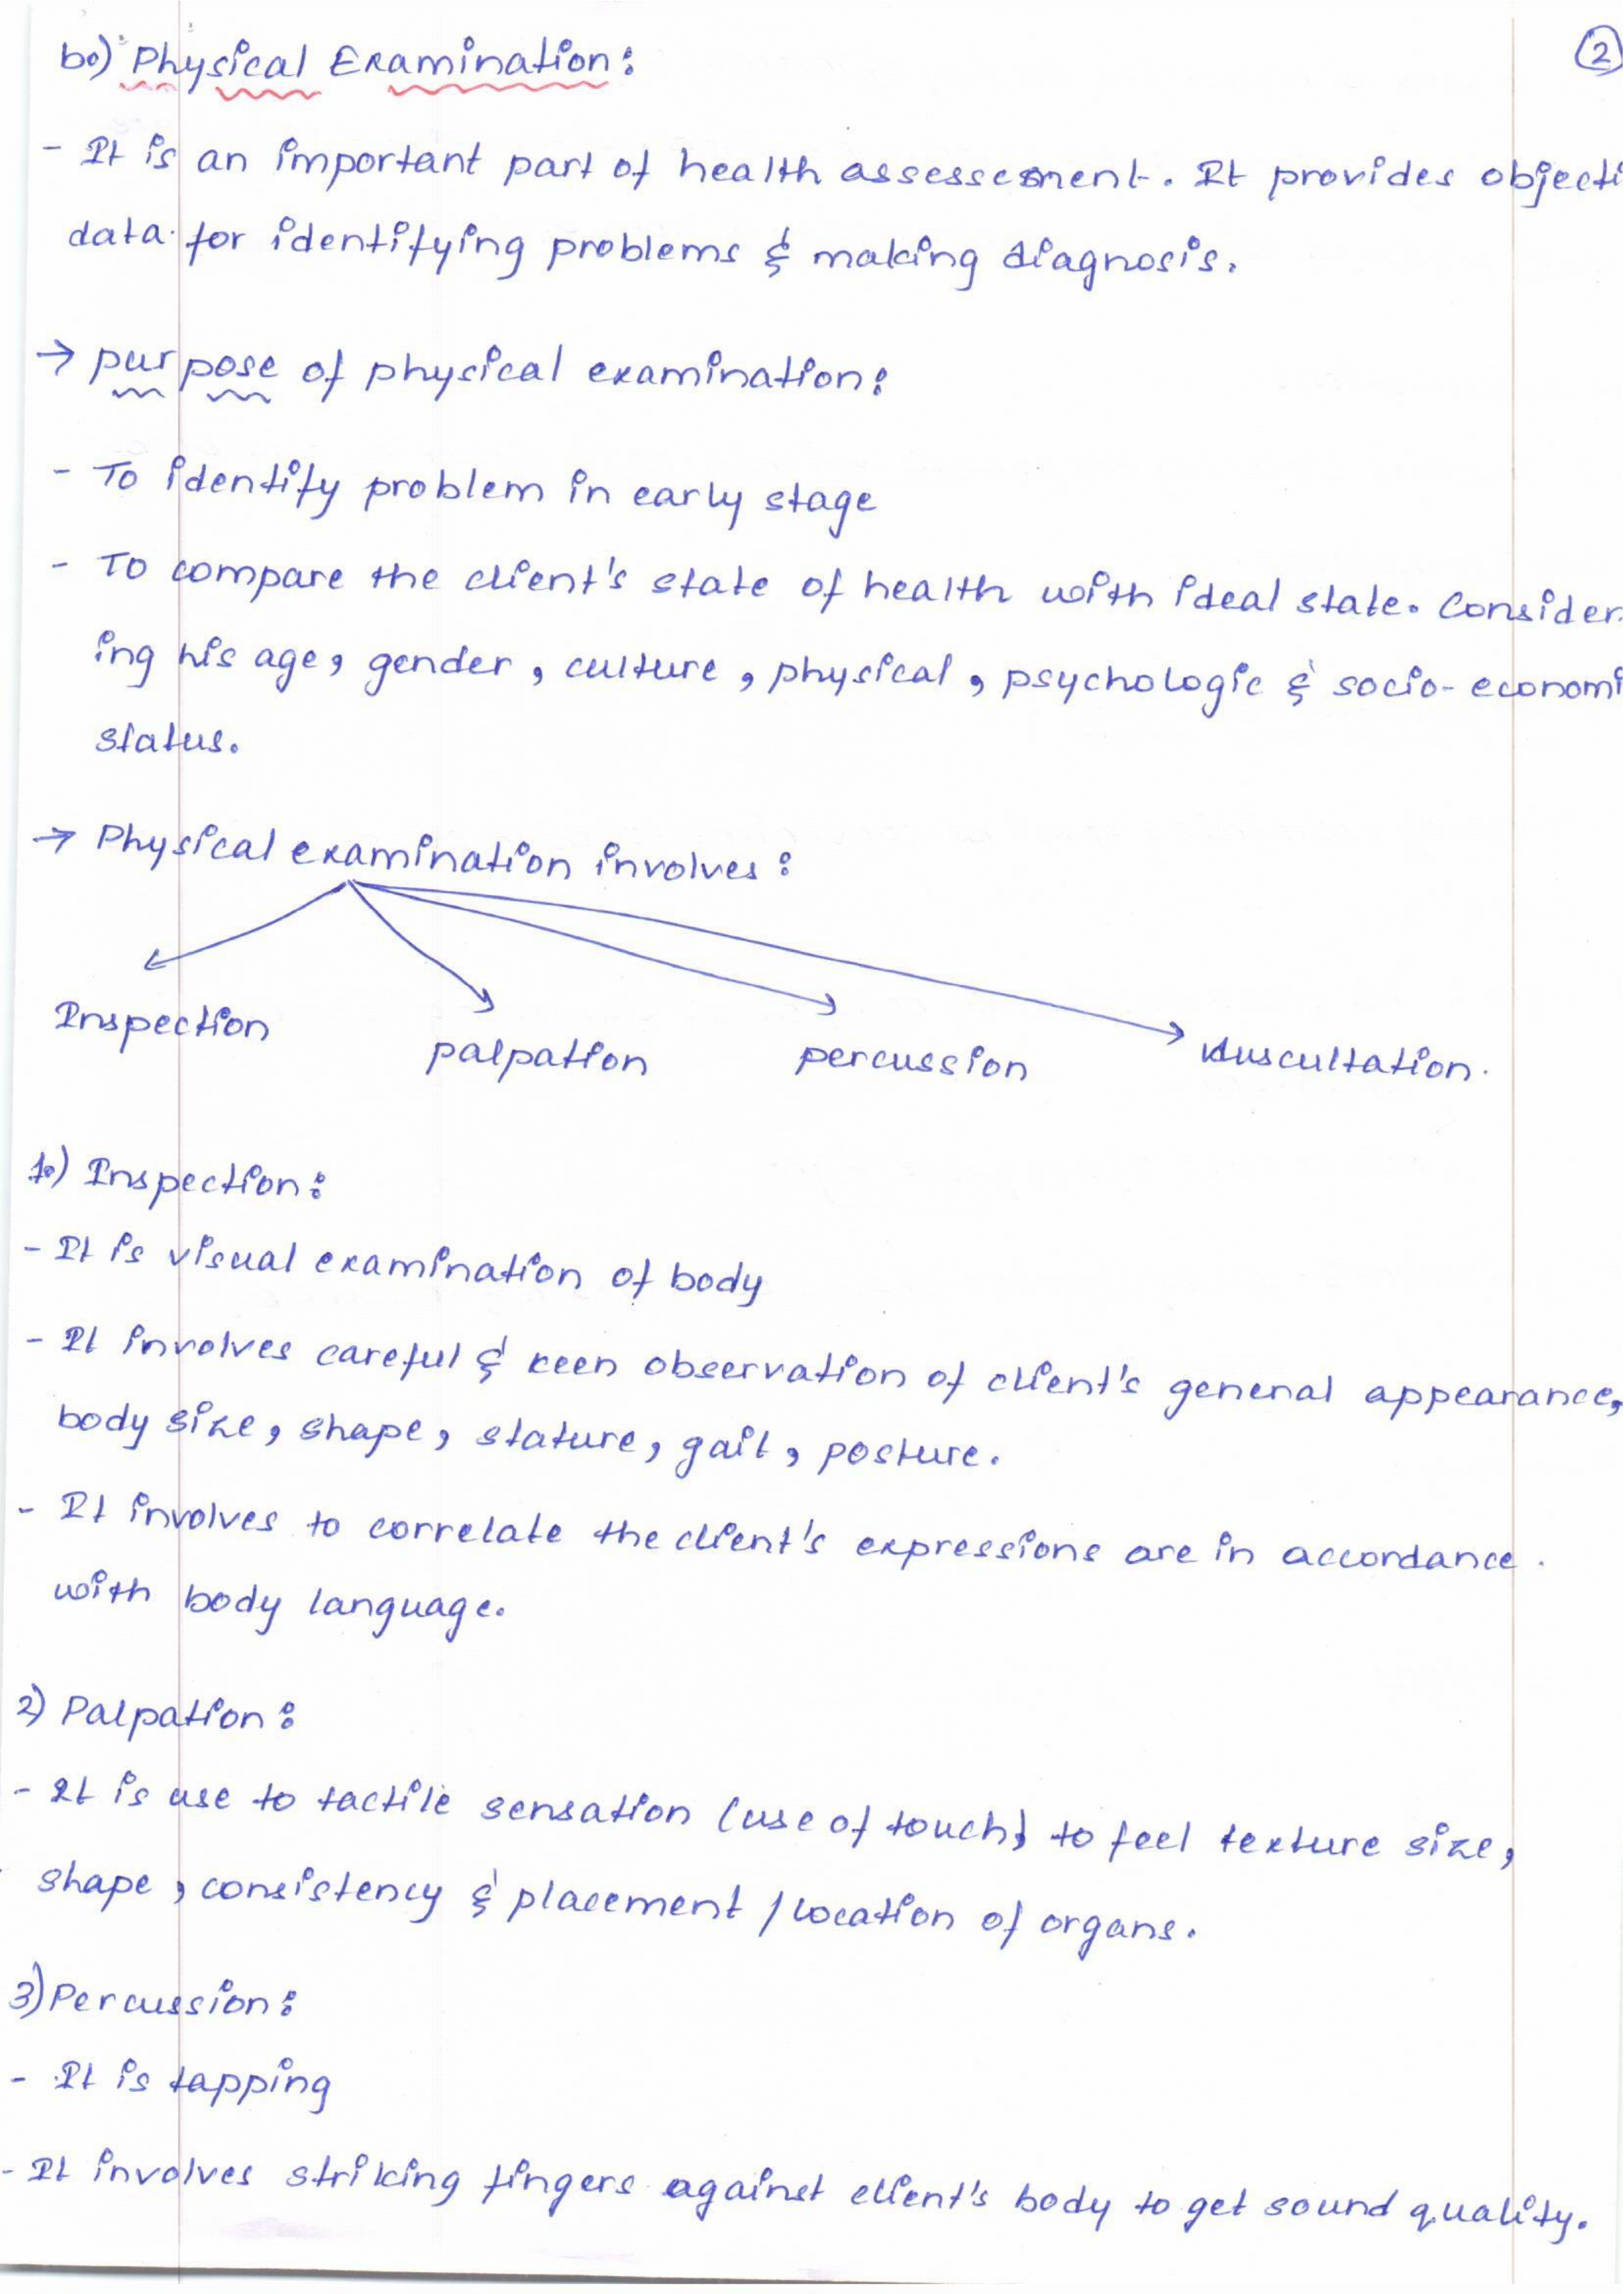 b.) Physical Examination:
2
- It is an important part of health assessement. It provides objecti
data for identifying problems & making diagnosis.
→ purpose of physical examination:
- To identify problem in early stage
- To compare the client's state of health with ideal state. Consider-
ing his age, gender, culture, physical, psychologic & socio-economi
status.
→ Physical examination involves:
Inspection palpation percussion Auscultation.
1.) Inspection:
- It is visual examination of body
- It involves careful & keen observation of client's general appearance,
body size, shape, stature, gait, posture.
- It involves to correlate the client's expressions are in accordance
with body language.
2) Palpation:
- It is use to tactile sensation (use of touch) to feel texture size,
shape, consistency & placement / location of organs.
3) Percussion:
- It is tapping
- It involves striking fingers against client's body to get sound quality.